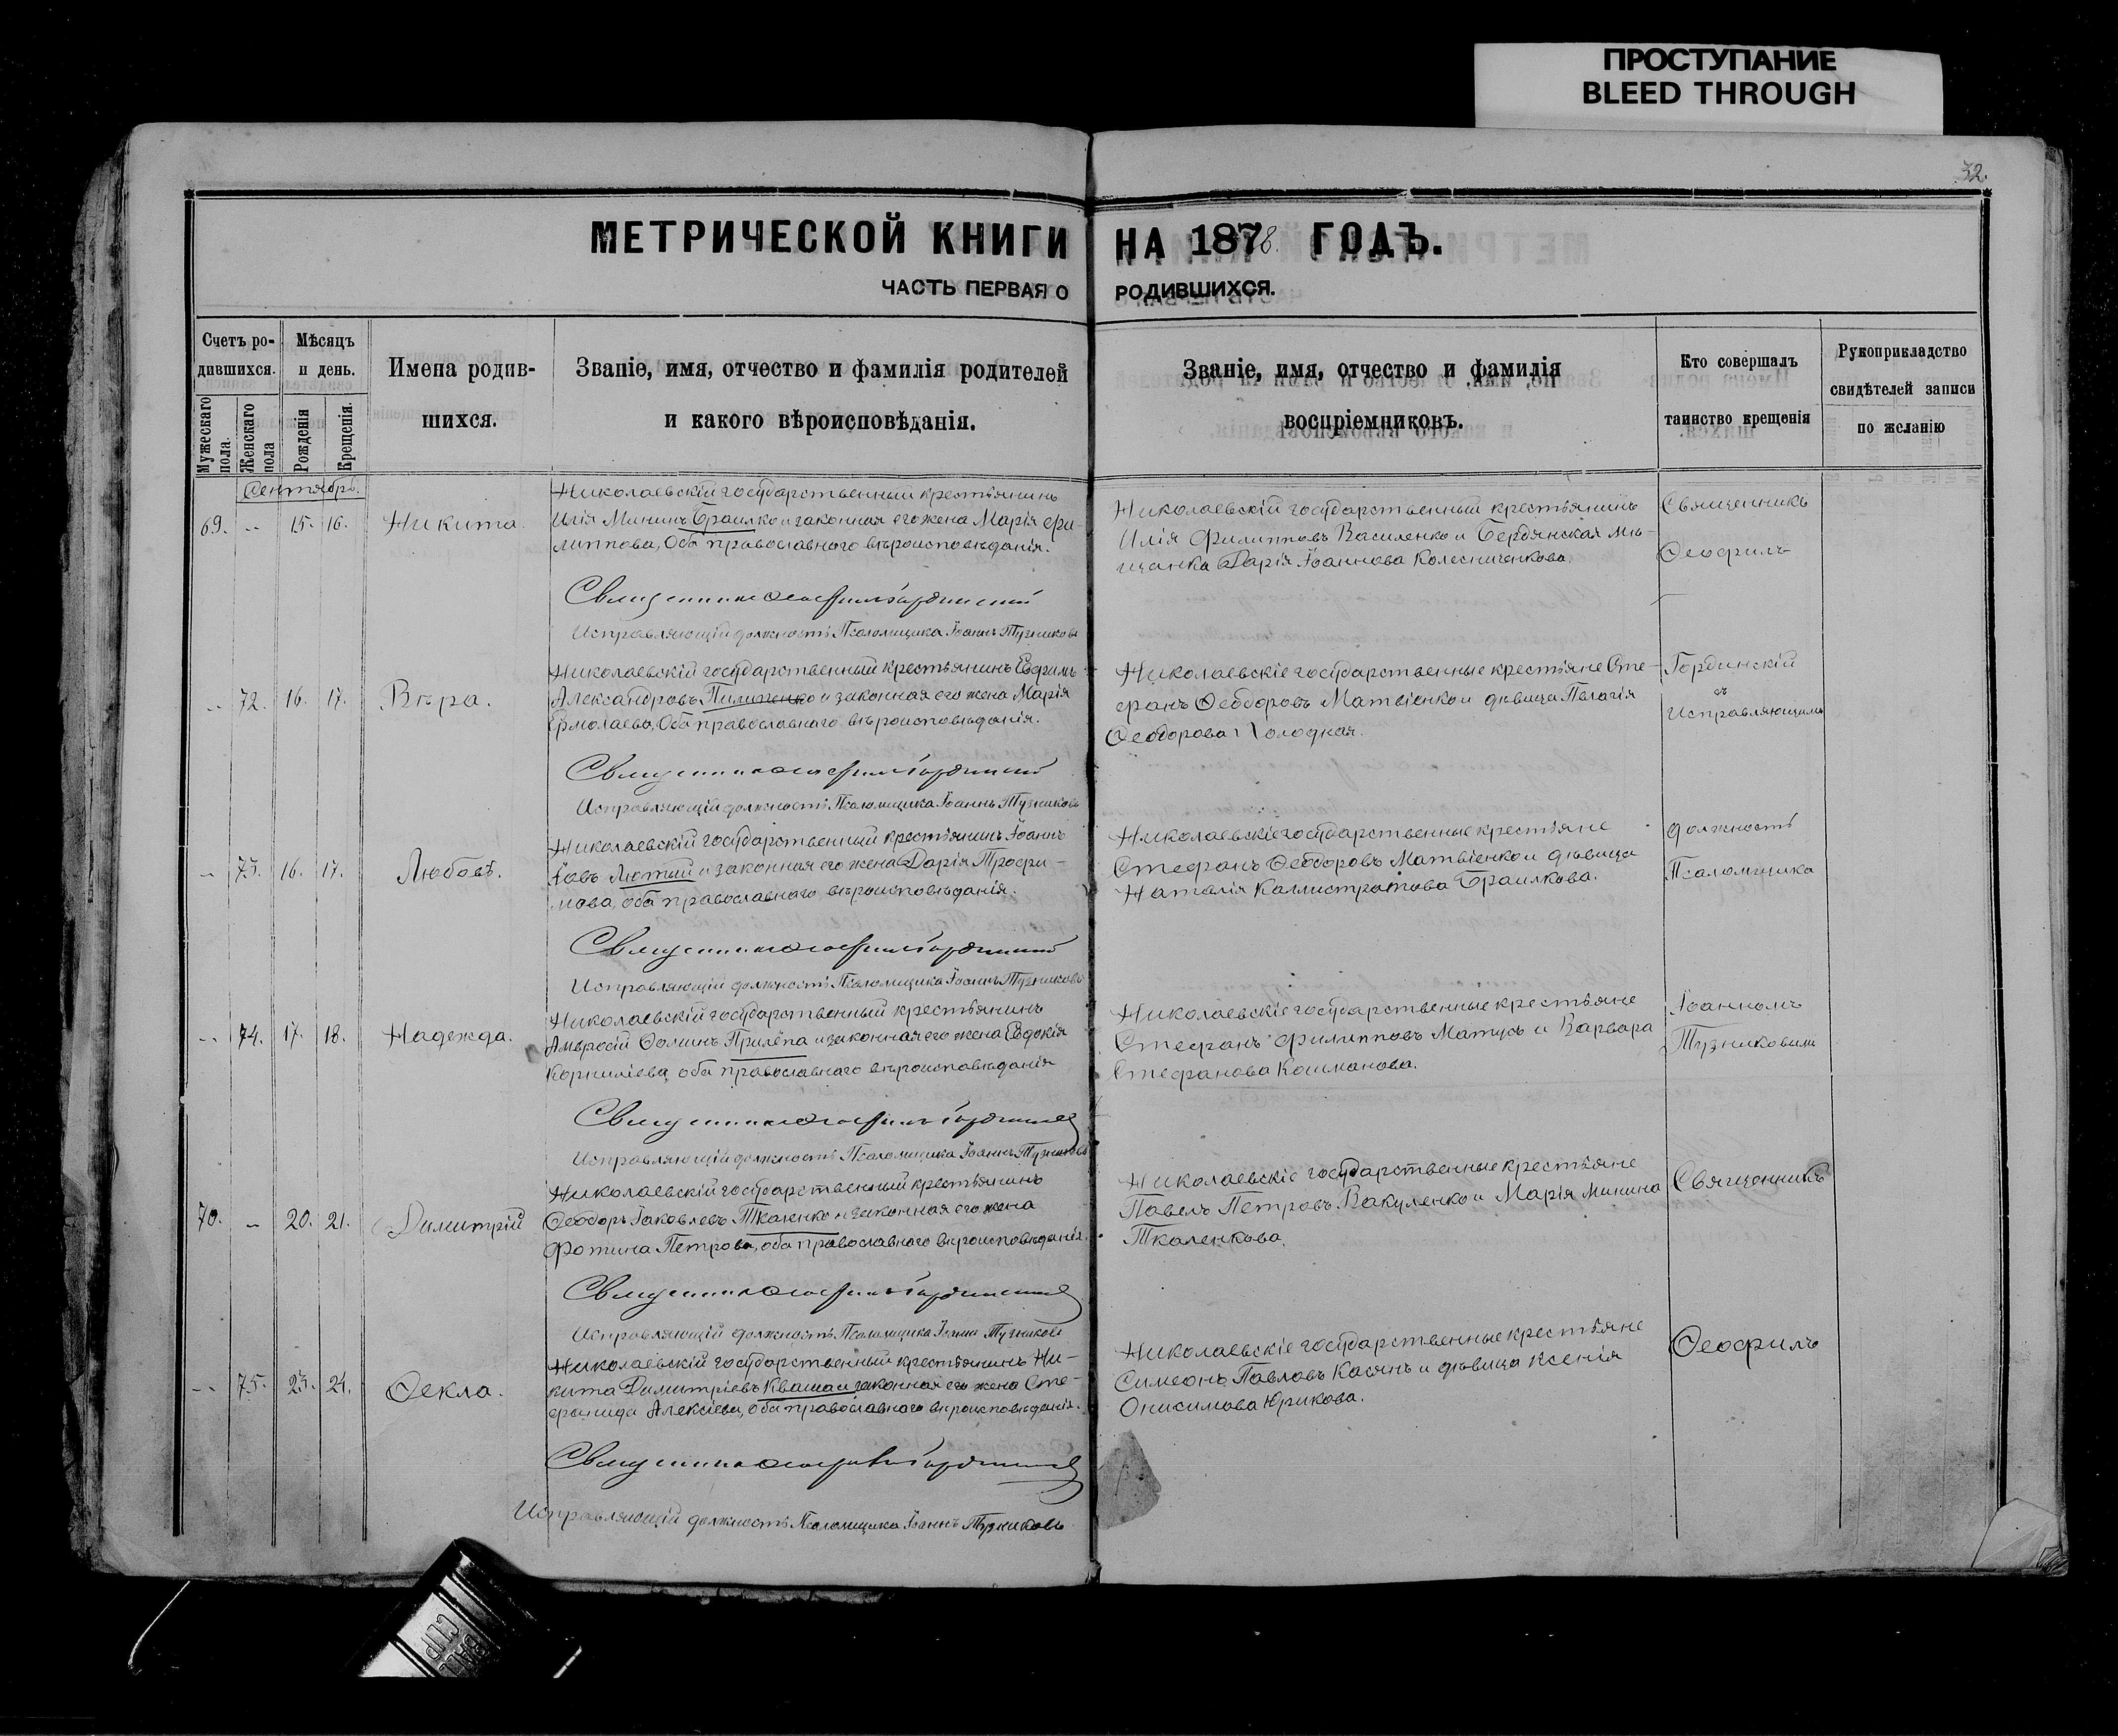 ПРОСТУПАНИЕ
BLEED THROUGH
32.
МЕТРИЧЕСКОЙ КНИГИ НА 1878 ГОДЪ.
ЧАСТЬ ПЕРВАЯ О РОДИВШИХСЯ.
Счетъ родившихся.
Мужескаго пола.
Женскаго пола
Мѣсяцъ и день.
Рожденія
Крещенія.
Имена родив-
шихся.
Званіе, имя, отчество и фамилія родителей
и какого вѣроисповѣданія.
Званіе, имя, отчество и фамилія
воспріемниковъ.
Кто совершалъ
таинство крещенія
Рукоприкладство
свидѣтелей записи
по желанію
Сентябрь.
69. -- 15. 16. Никита.
Николаевскій государственный крестьянинъ
Илія Мининъ Браилко и законная его жена Марія Фи-
липпова, Оба православнаго вѣроисповѣданія.
Николаевскій государственный крестьянинъ
Илія Филипповъ Василенко и Бердянская мѣ-
щанка Дарія Іоаннова Колесниченкова.
Священникъ
Ѳеофилъ
Священникъ Ѳеофилъ Гординскій
Исправляющій должность Псаломщика Іоаннъ Тузниковъ
-- 72. 16. 17. Вѣра.
Николаевскій государственный крестьянинъ Евфимъ
Александровъ и законная его жена Марія
Ермолаева, Оба православнаго вѣроисповѣданія.
Николаевскіе государственные крестьяне Сте-
фанъ Ѳеодоровъ Матвіенко и дѣвица Пелагія
Ѳеодорова Холодная.
Гординскій
съ
Исправляющимъ
Священникъ Ѳеофилъ Гординскій
Исправляющій должность Псаломщика Іоаннъ Тузниковъ
-- 73. 16. 17. Любовь.
Николаевскій государственный крестьянинъ Іоаннъ
Іовъ Лютый и законная его жена Дарія Трофи-
мова, оба православнаго вѣроисповѣданія.
Николаевскіе государственные крестьяне
Стефанъ Ѳеодоровъ Матвіенко и дѣвица
Наталія Каллистратова Браилкова.
должность
Псаломщика
Священникъ Ѳеофилъ Гординскій
Исправляющій должность Псаломщика Іоаннъ Тузниковъ
-- 74. 17. 18. Надежда.
Николаевскій государственный крестьянинъ
Амвросій Ѳоминъ Прилѣпа и законная его жена Евдокія
Корниліева, оба православнаго вѣроисповѣданія
Николаевскіе государственные крестьяне
Стефанъ Филипповъ Матусь и Варвара
Стефанова Кошманова.
Іоанномъ
Тузниковымъ
Священникъ Ѳеофилъ Гординскій
Исправляющій должность Псаломщика Іоаннъ Тузниковъ
70. -- 20. 21. Димитрій
Николаевскій государственный крестьянинъ
Ѳеодоръ Іаковлевъ Ткаленко и законная его жена
Фотина Петрова, оба православнаго вѣроисповѣданія.
Николаевскіе государственные крестьяне
Павелъ Петровъ Вакуленко и Марія Минина
Ткаленкова.
Священникъ
Священникъ Ѳеофилъ Гординскій
Исправляющій должность Псаломщика Іоаннъ Тузниковъ
-- 75. 23. 24. Ѳекла.
Николаевскій государственный крестьянинъ Ни-
кита Димитріевъ Кваша и законная его жена Сте-
фанида Алексіева, оба православнаго вѣроисповѣданія.
Николаевскіе государственные крестьяне
Симеонъ Павловъ Касянъ и дѣвица Ксенія
Онисимова Юрикова.
Ѳеофилъ
Священникъ Ѳеофилъ Гординскій
Исправляющій должность Псаломщика Іоаннъ Тузниковъ